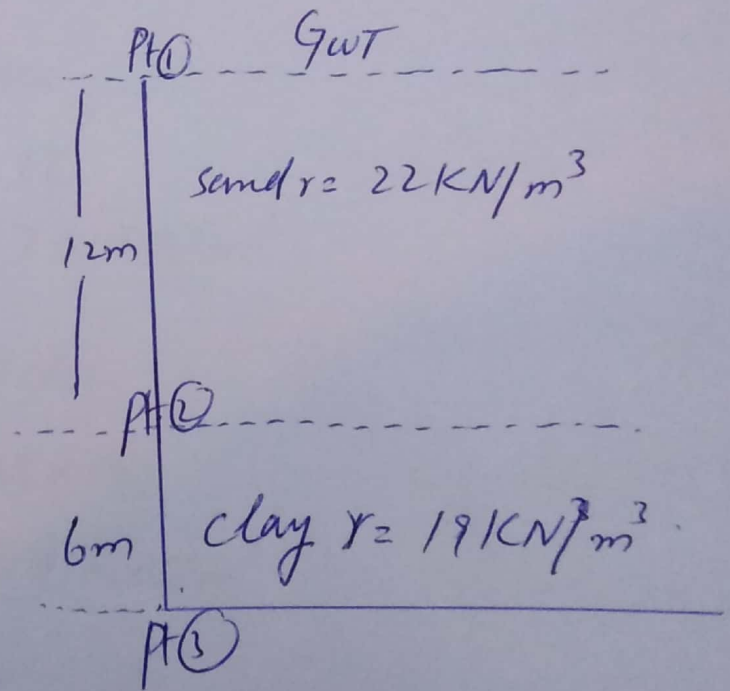 Pt① GWT
sand γ = 22 KN/m³
12m
Pt②
6m clay γ = 19 KN/m³
Pt③